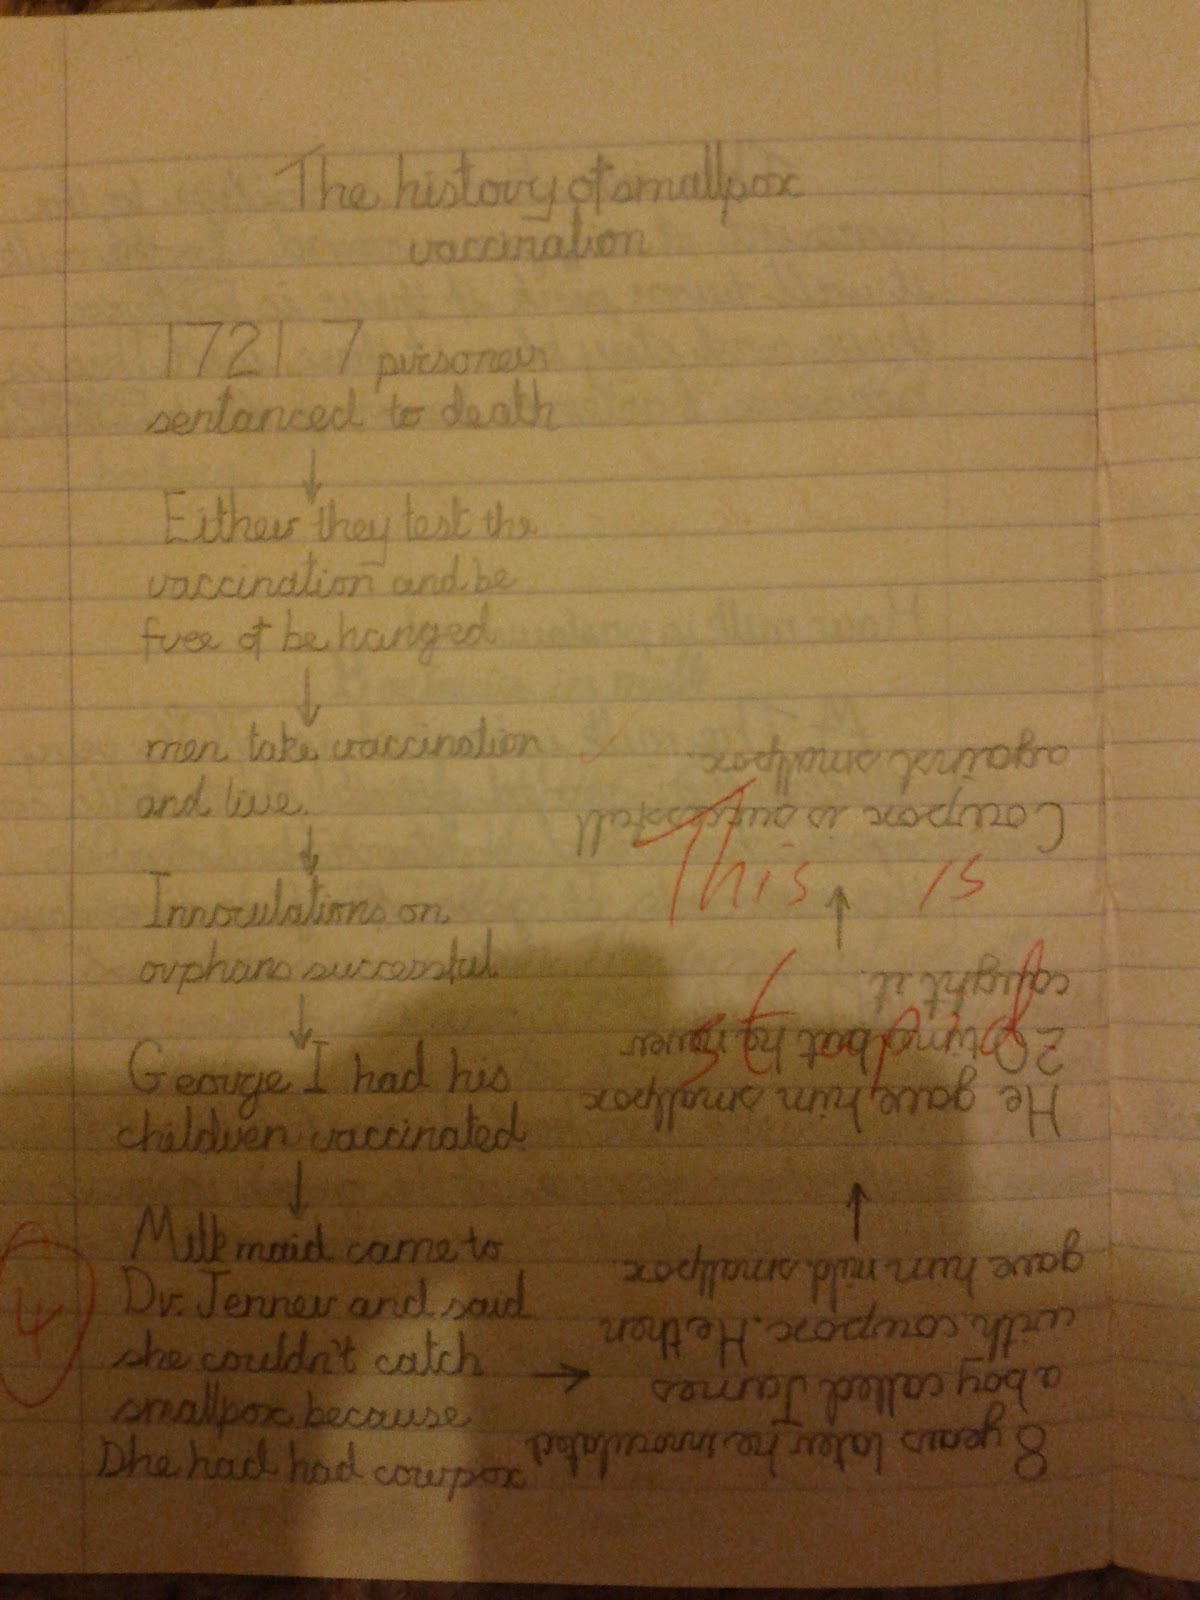 The history of smallpox
vaccination
1721. 7 pirsoners
sentanced to death
Either they test the
vaccination and be
free of be hanged
men take vaccination
and live.
Innoculations on
orphans successful
George I had his
children vaccinated.
Milk maid came to
Dr. Jenner and said
she couldn't catch
smallpox because
she had had cowpox
8 years later he innoculated
a boy called James
with cowpox. He then
gave him mild smallpox.
He gave him smallpox
20 times but he never
caught it.
Cowpox is successfull
against smallpox.
This is
stupid
4